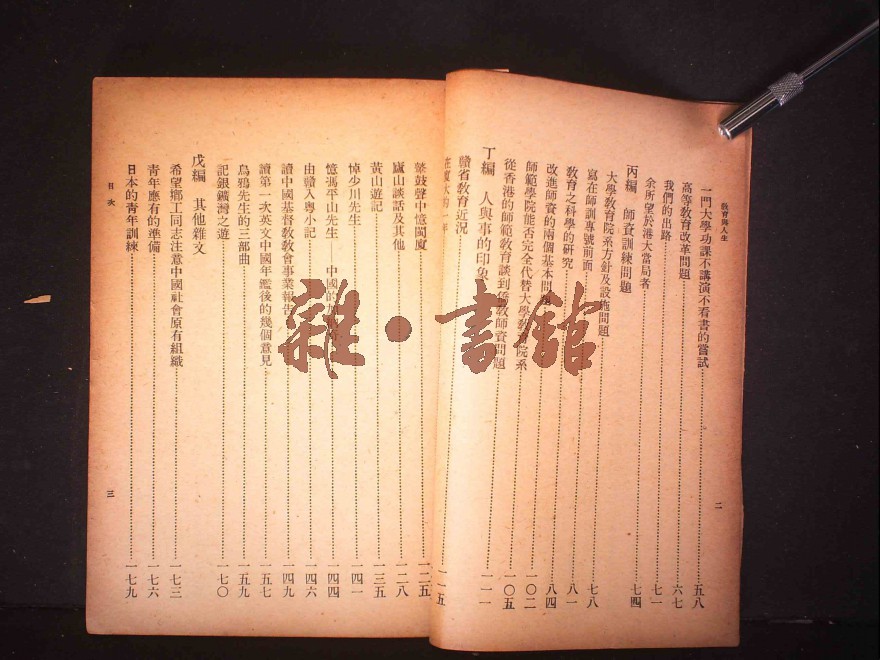 教育與人生
一門大學功課不講演不看書的嘗試……五八
高等教育改革問題……六七
我們的出路……七一
余所望於港大當局者……七四
丙編　師資訓練問題
大學教育院系方針及設施問題
寫在師訓專號前面……七八
教育之科學的研究……八一
改進師資的兩個基本問題……八四
師範學院能否完全代替大學教育院系……一〇二
從香港的師範教育談到僑教師資問題……一〇五
丁編　人與事的印象
贛省教育近況……一一一
在廈大的一年……一一五
二
鼙鼓聲中憶閩廈……一二五
廬山談話及其他……一二八
黃山遊記……一三五
悼少川先生……一四一
憶馮平山先生——中國的……一四四
由贛入粵小記……一四六
讀中國基督教教會事業報告……一四九
讀第一次英文中國年鑑後的幾個意見……一五七
烏鴉先生的三部曲……一五九
記銀鑛灣之遊……一七〇
戊編　其他雜文
希望鄉工同志注意中國社會原有組織……一七三
青年應有的準備……一七六
日本的青年訓練……一七九
目次
三
雜·書館